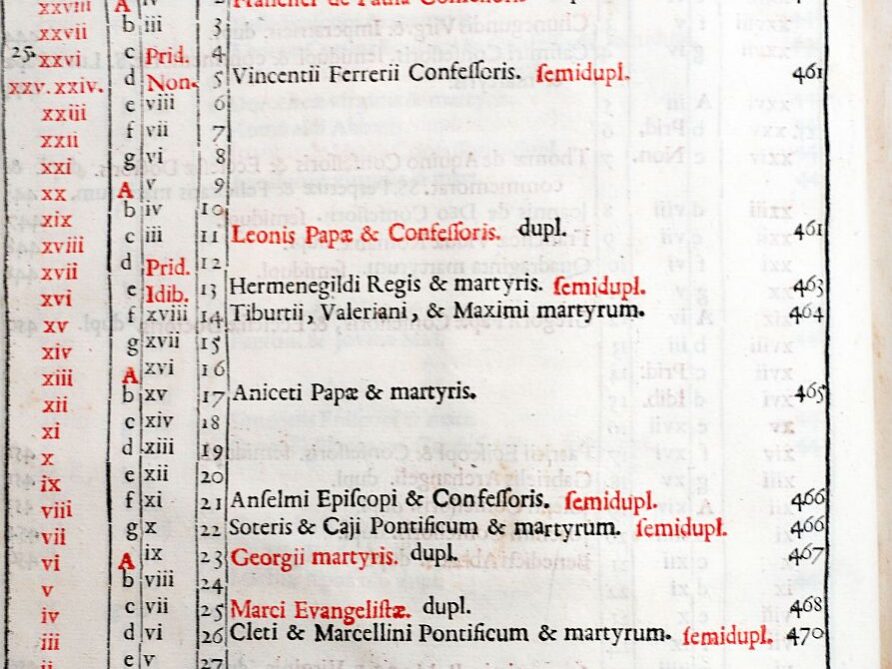 xxviii A iv 2 Francisci de Paula Confessoris
xxvii b iii 3
25. xxvi c Prid. 4
xxv. xxiv. d Non. 5 Vincentii Ferrerii Confeſſoris. ſemidupl. 461
xxiii e viii 6
xxii f vii 7
xxi g vi 8
xx A v 9
xix b iv 10
xviii c iii 11 Leonis Papæ & Confeſſoris. dupl. 461
xvii d Prid. 12
xvi e Idib. 13 Hermenegildi Regis & martyris. ſemidupl. 463
xv f xviii 14 Tiburtii, Valeriani, & Maximi martyrum. 464
xiv g xvii 15
xiii A xvi 16
xii b xv 17 Aniceti Papæ & martyris. 465
xi c xiv 18
x d xiii 19
ix e xii 20
viii f xi 21 Anſelmi Epiſcopi & Confeſſoris. ſemidupl. 466
vii g x 22 Soteris & Caji Pontificum & martyrum. ſemidupl. 466
vi A ix 23 Georgii martyris. dupl. 467
v b viii 24
iv c vii 25 Marci Evangeliſtæ. dupl. 468
iii d vi 26 Cleti & Marcellini Pontificum & martyrum. ſemidupl. 470
ii e v 27